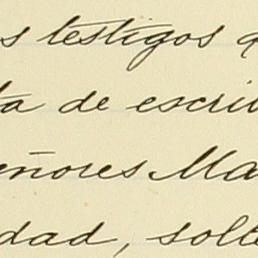 s testigos
ta de escri
eñores Ma
dad, solte